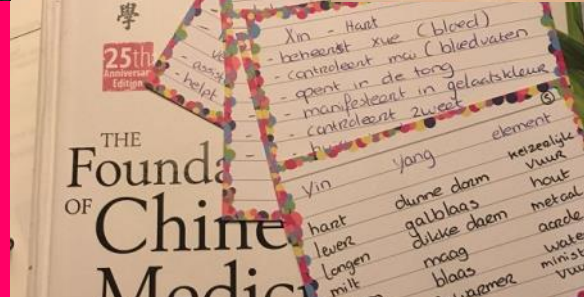 學
25th
Anniversary
Edition
THE
Founda
OF Chine
Medic
- assist
- helpt
Xin - Hart
- beheerst xue (bloed)
- controleert mai (bloedvaten
- opent in de tong
- manifesteert in gelaatskleur
- controleert zweet
5
Yin yang element
hart dunne darm keizerlijk vuur
lever galblaas hout
longen dikke darm metaal
milt maag aarde
blaas wate
warmer minist
vuu